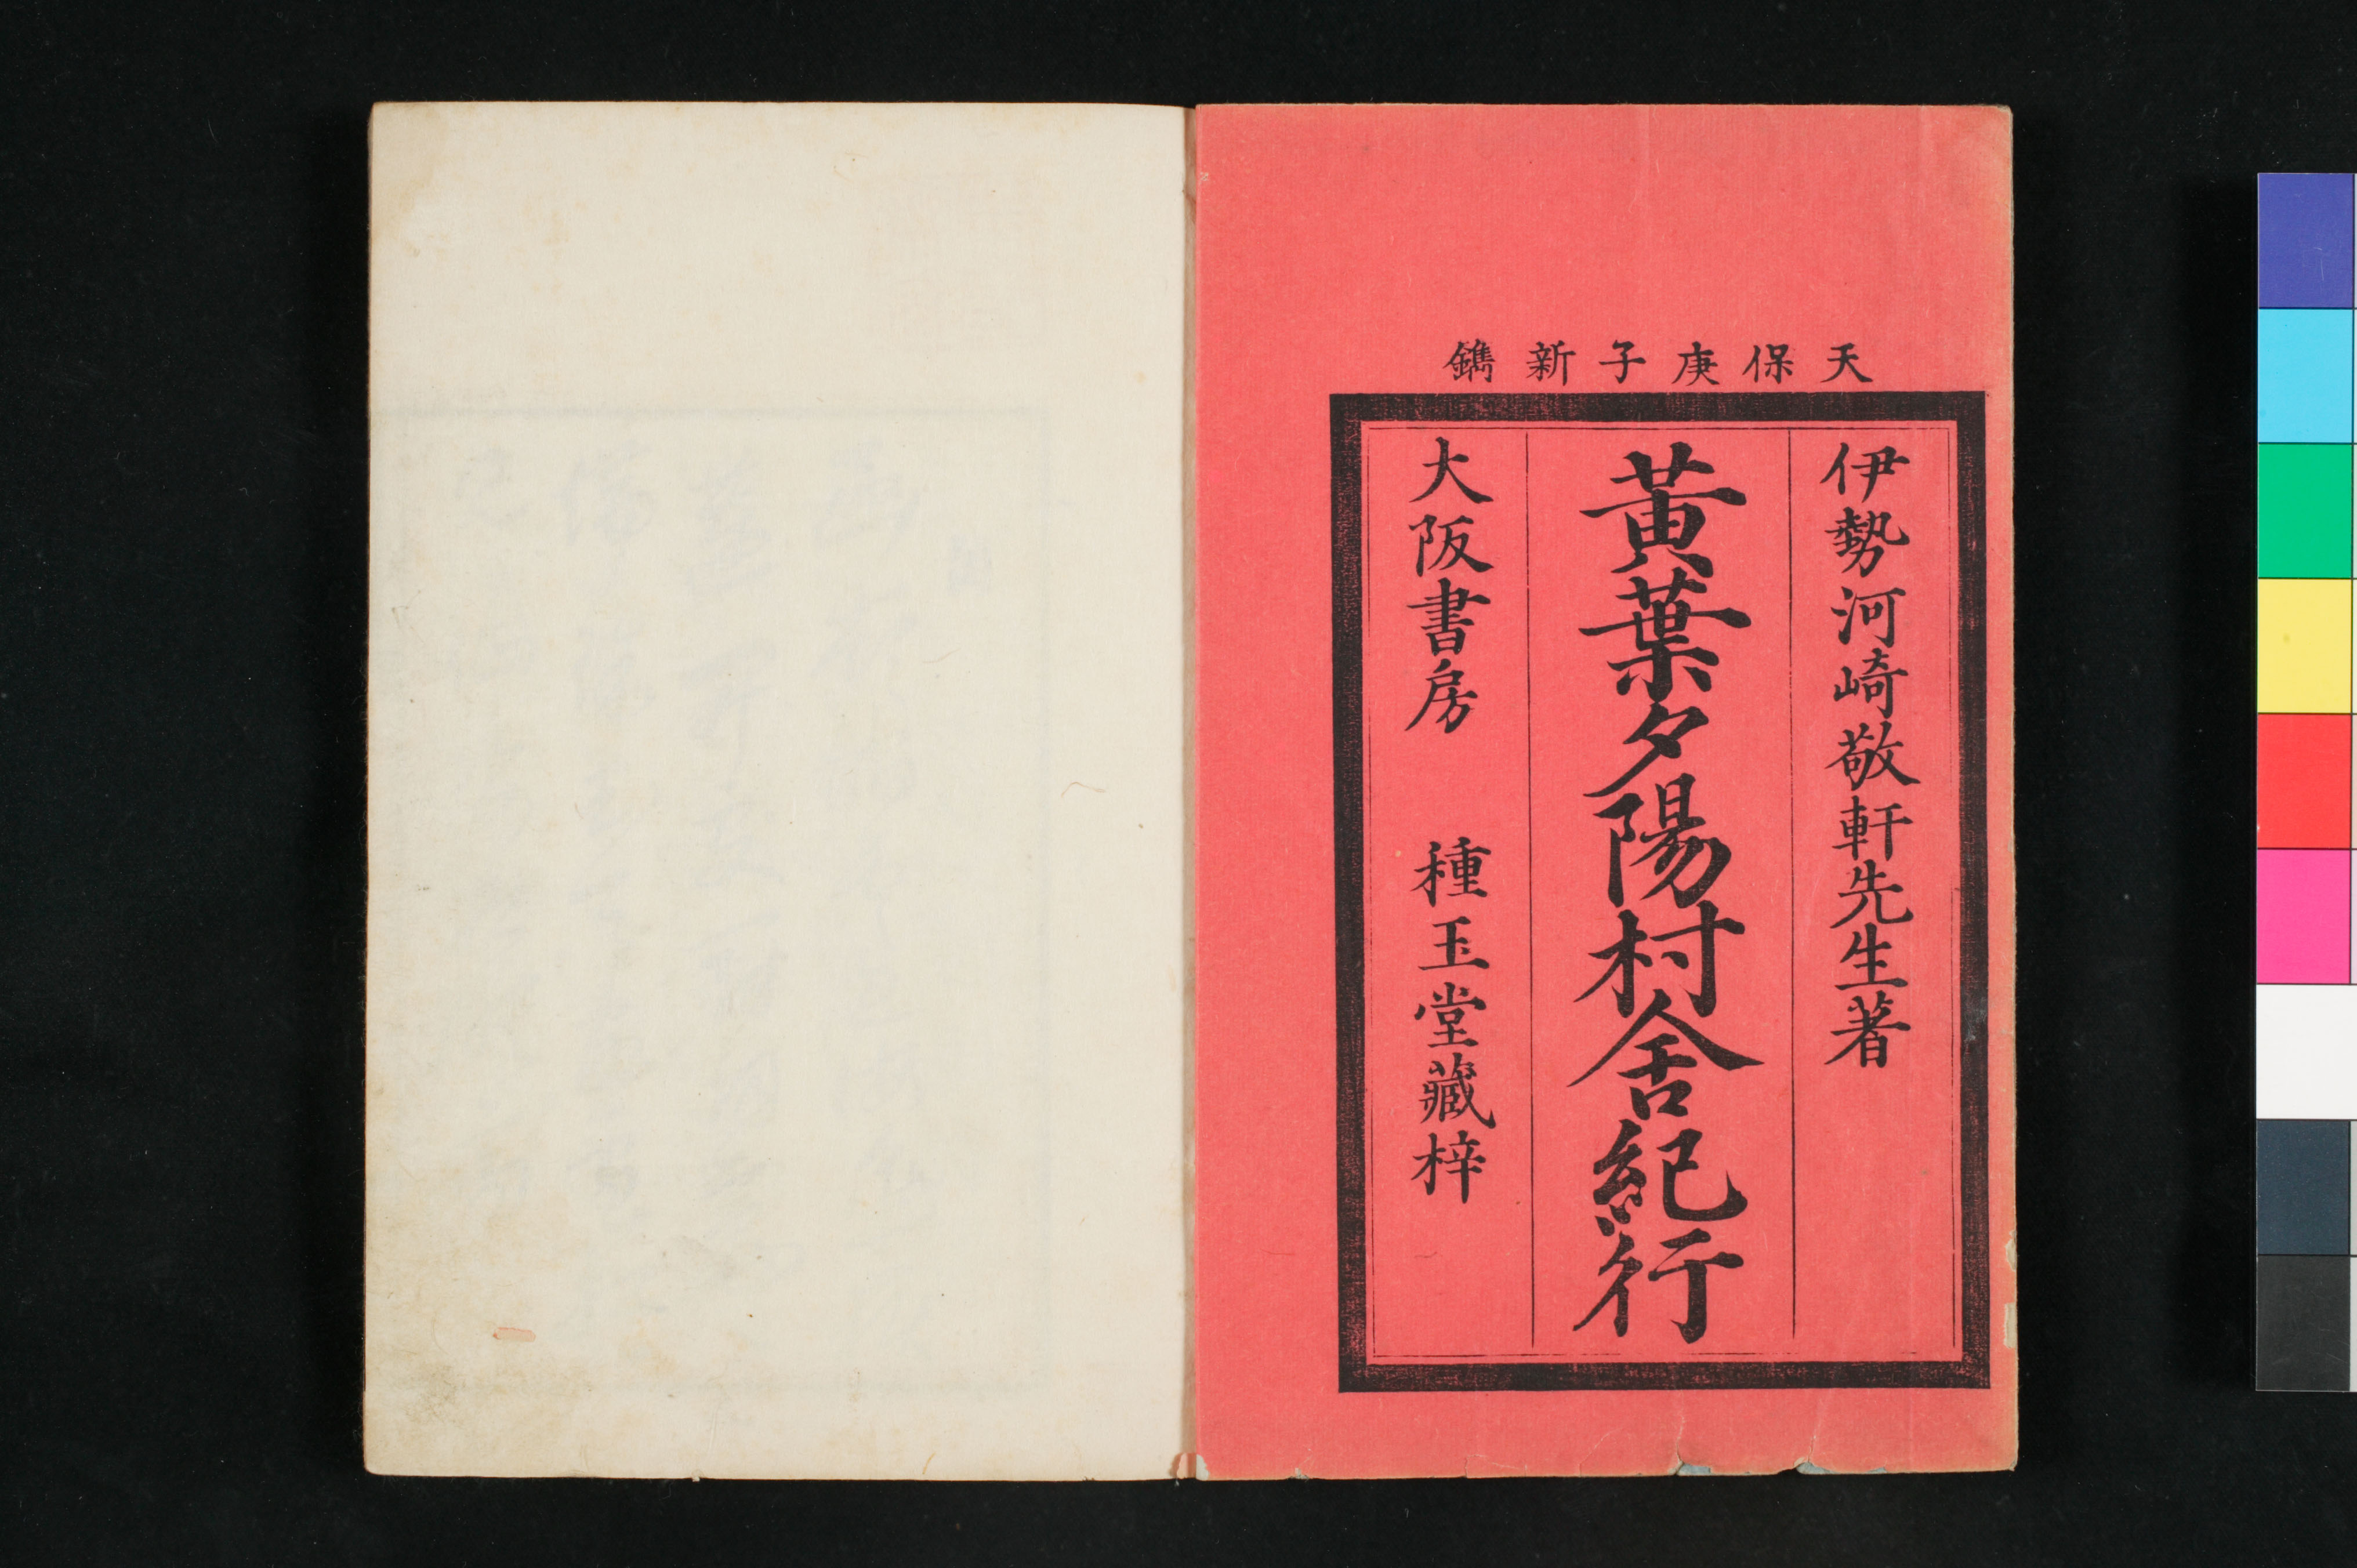 天保庚子新鐫
伊勢河崎敬軒先生著
黃葉夕陽村舍紀行
大阪書房 種玉堂藏梓